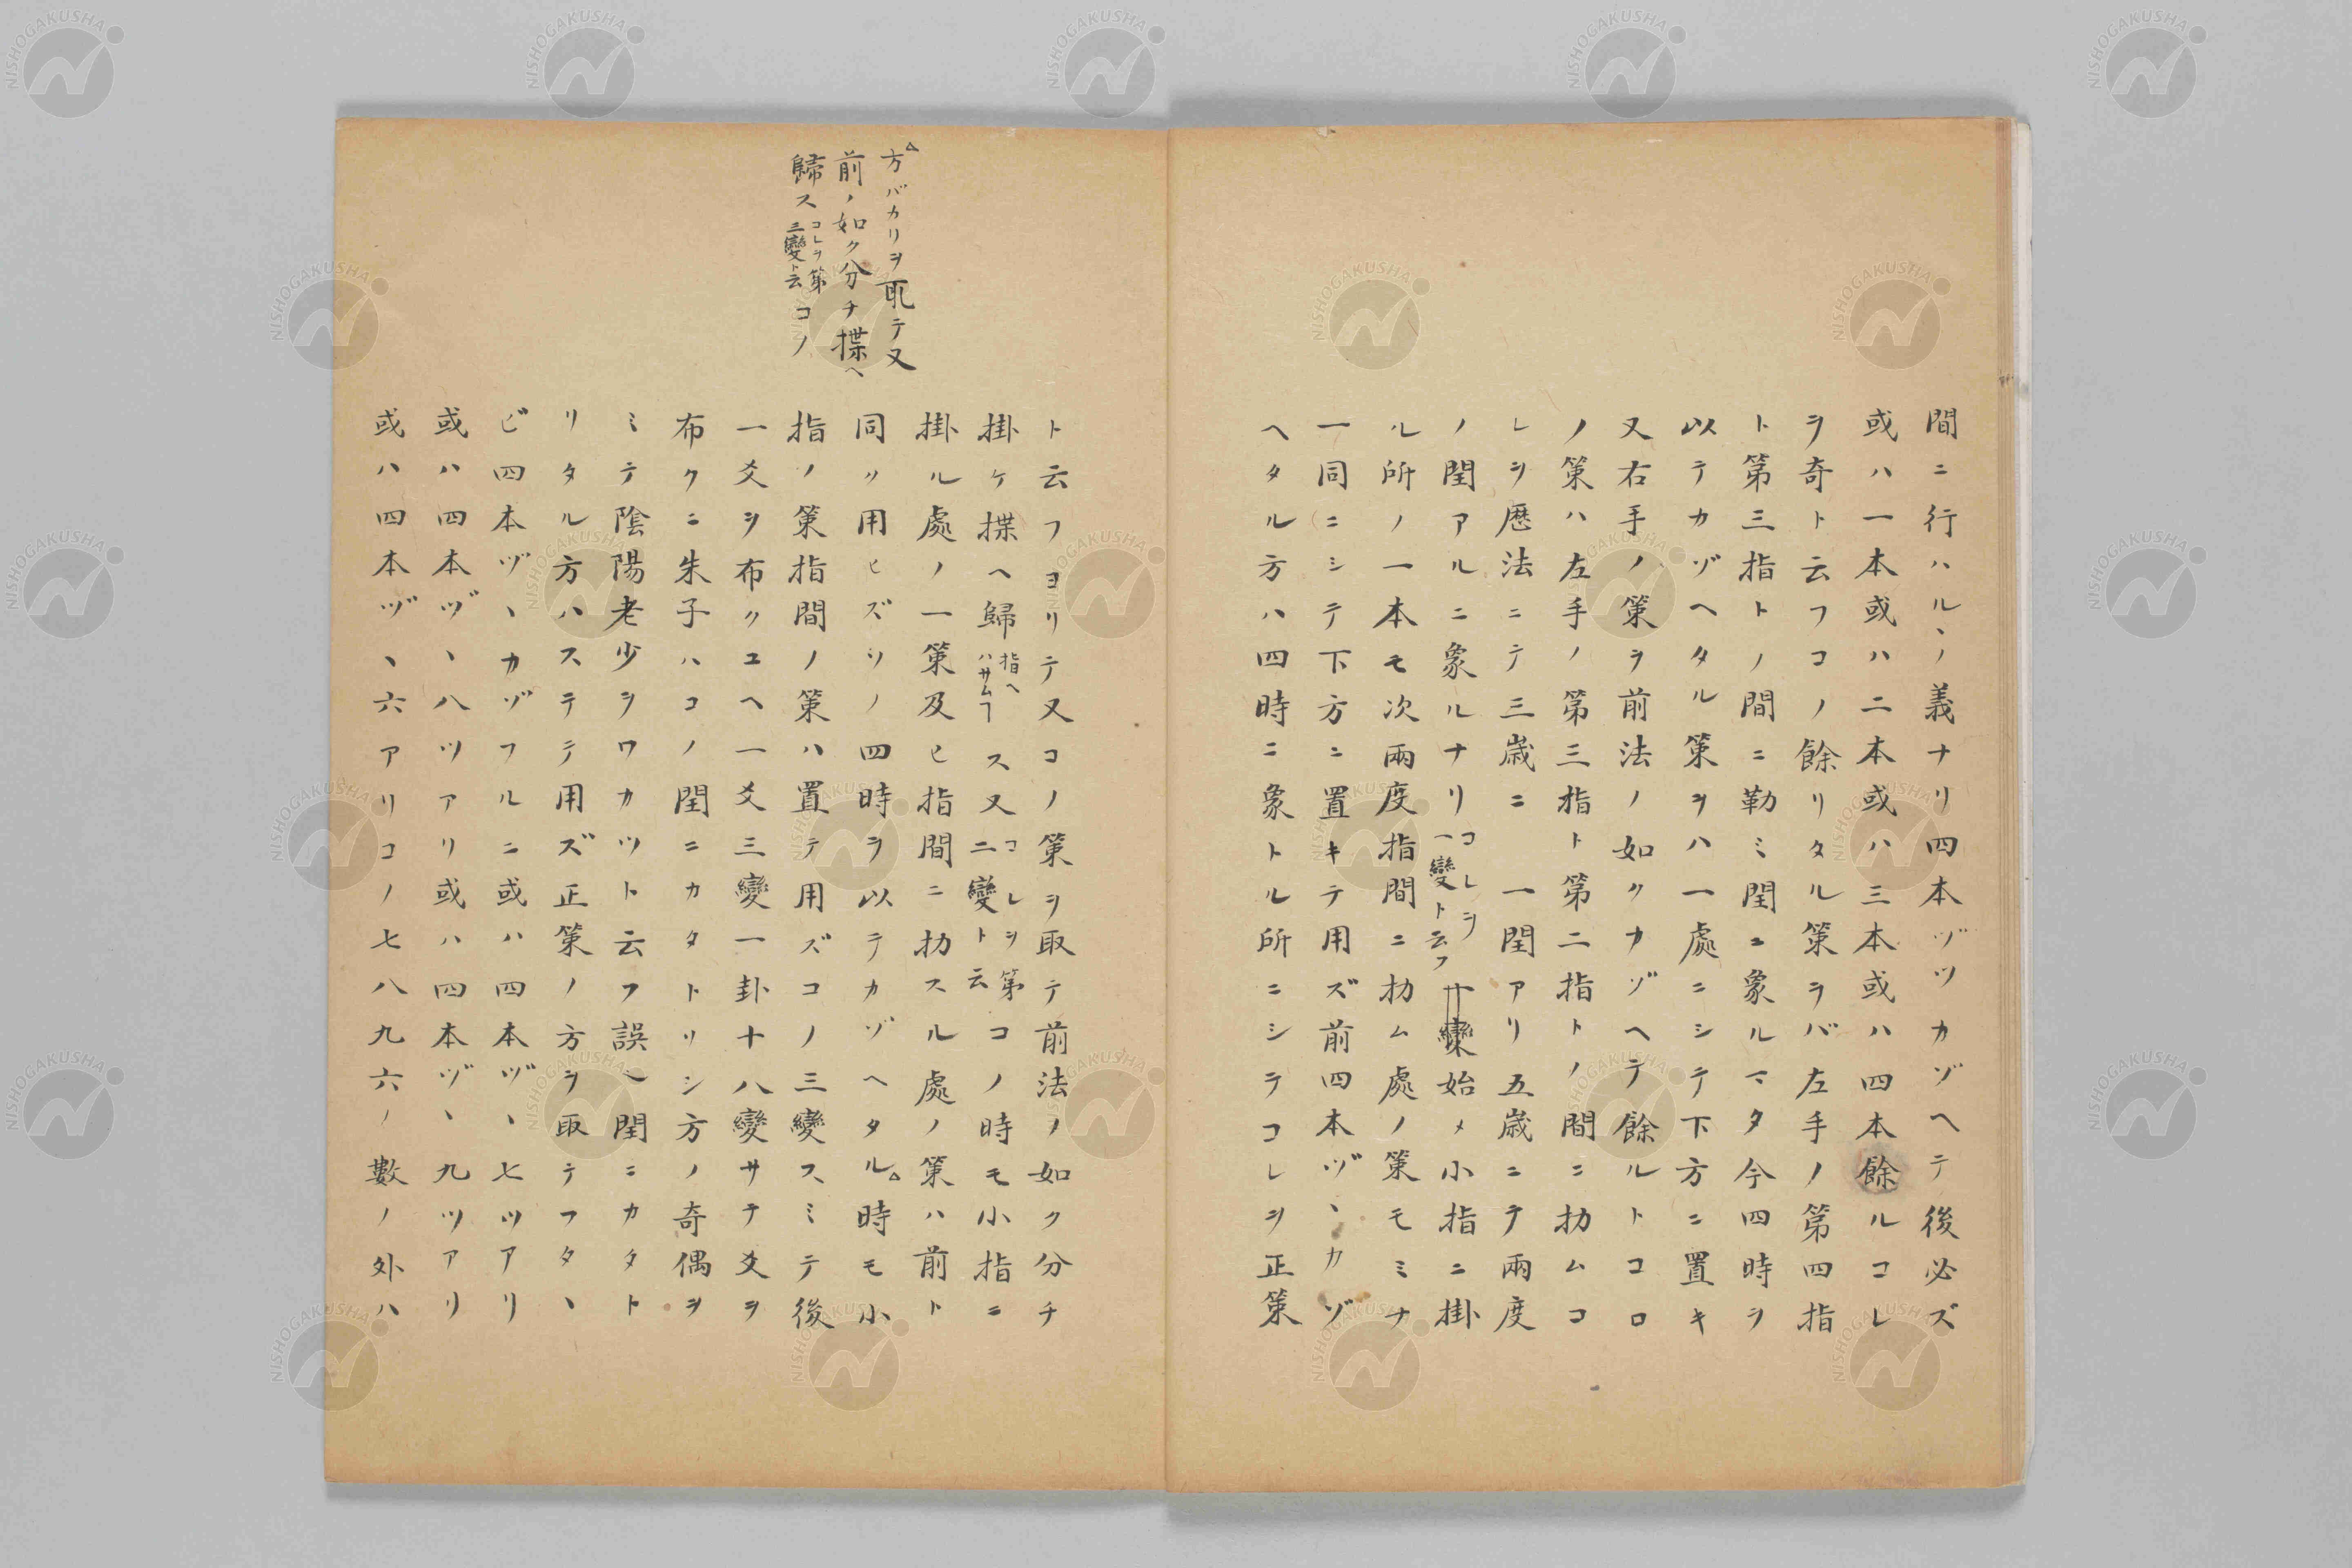 間ニ行ハルヽノ義ナリ四本ヅツカゾヘテ後必ズ
或ハ一本或ハ二本或ハ三本或ハ四本餘ルコレ
ヲ奇ト云フコノ餘リタル策ヲバ左手ノ第四指
ト第三指トノ間ニ勒ミ閏ニ象ルマタ今四時ヲ
以テカゾヘタル策ヲハ一處ニシテ下方ニ置キ
又右手ノ策ヲ前法ノ如クカゾヘテ餘ルトコロ
ノ策ハ左手ノ第三指ト第二指トノ間ニ扐ムコ
レヲ歴法ニテ三歳ニ一閏アリ五歳ニテ兩度
ノ閏アルニ象ルナリコレヲ一變ト云フ始メ小指ニ掛
ル所ノ一本モ次兩度指間ニ扐ム處ノ策モミナ
一同ニシテ下方ニ置キテ用ズ前四本ヅヽカゾ
ヘタル方ハ四時ニ象トル所ニシテコレヲ正策
ト云フヨリテ又コノ策ヲ取テ前法ノ如ク分チ
掛ケ揲ヘ歸指ヘハサムヿス又コレヲ第二變ト云コノ時モ小指ニ
掛ル處ノ一策及ヒ指間ニ扐スル處ノ策ハ前ト
同ク用ヒズソノ四時ヲ以テカゾヘタル△時モ小
指ノ策指間ノ策ハ置テ用ズコノ三變スミテ後
一爻ヲ布クユヘ一爻三變一卦十八變サテ爻ヲ
布クニ朱子ハコノ閏ニカタトリシ方ノ奇偶ヲ
ミテ陰陽老少ヲワカツト云フ誤ヘ閏ニカタト
リタル方ハステテ用ズ正策ノ方ヲ取テフタヽ
ビ四本ヅヽカゾフルニ或ハ四本ヅヽ七ツアリ
或ハ四本ヅヽ八ツアリ或ハ四本ヅヽ九ツアリ
或ハ四本ヅヽ六アリコノ七八九六ノ數ノ外ハ
△方バカリヲ取テ又
前ノ如ク分チ揲ヘ
歸スコレヲ第三變ト云コノ
NISHOGAKUSHA